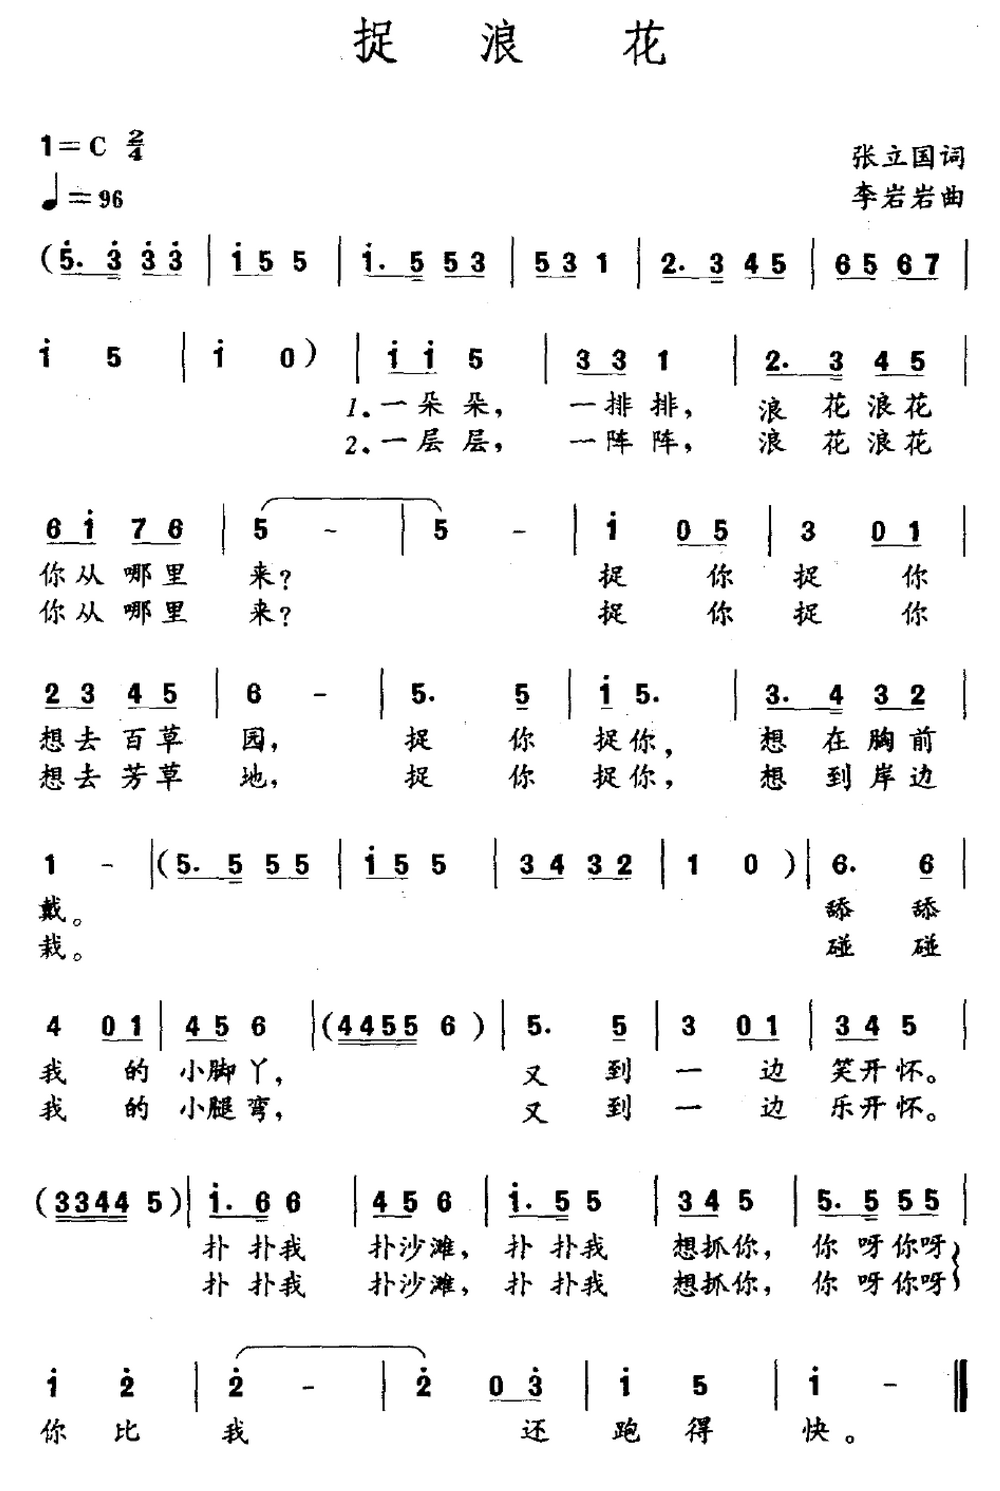 捉 浪 花
1=C 2/4
张立国词
♩=96
李岩岩曲
(5̇. 3̇ 3̇ 3̇ | 1̇ 5 5 | 1̇. 5 5 3 | 5 3 1 | 2. 3 4 5 | 6 5 6 7 |
1̇ 5 | 1̇ 0) | 1̇ 1̇ 5 | 3 3 1 | 2. 3 4 5 |
1.一朵朵, 一排排, 浪花浪花
2.一层层, 一阵阵, 浪花浪花
6 1̇ 7 6 | 5 - | 5 - | 1̇ 0 5 | 3 0 1 |
你从哪里 来? 捉 你 捉 你
你从哪里 来? 捉 你 捉 你
2 3 4 5 | 6 - | 5. 5 | 1̇ 5. | 3. 4 3 2 |
想去百草 园, 捉 你 捉你, 想 在胸前
想去芳草 地, 捉 你 捉你, 想 到岸边
1 - |(5. 5 5 5 | 1̇ 5 5 | 3 4 3 2 | 1 0 )| 6. 6 |
戴。 舔 舔
栽。 碰 碰
4 0 1 | 4 5 6 |(4 4 5 5 6 )| 5. 5 | 3 0 1 | 3 4 5 |
我 的 小脚丫, 又 到 一 边 笑开怀。
我 的 小腿弯, 又 到 一 边 乐开怀。
(3 3 4 4 5 )| 1̇. 6 6 | 4 5 6 | 1̇. 5 5 | 3 4 5 | 5. 5 5 5 |
扑 扑我 扑沙滩, 扑 扑我 想抓你, 你 呀你呀
扑 扑我 扑沙滩, 扑 扑我 想抓你, 你 呀你呀
1̇ 2̇ | 2̇ - | 2̇ 0 3̇ | 1̇ 5 | 1̇ - ‖
你 比 我 还 跑 得 快。